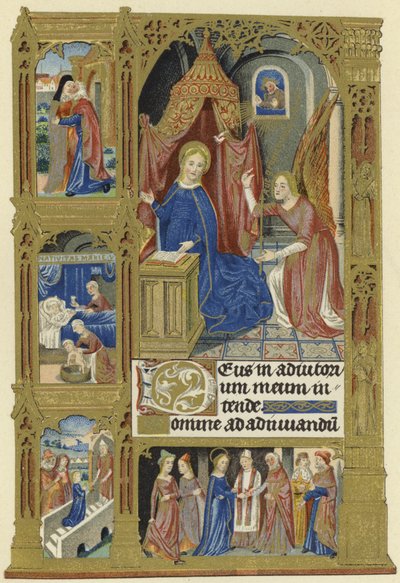 NATIVITAS MARIE
DEus in adiutori
um meum in"
tende.
omine ad adiuuandū